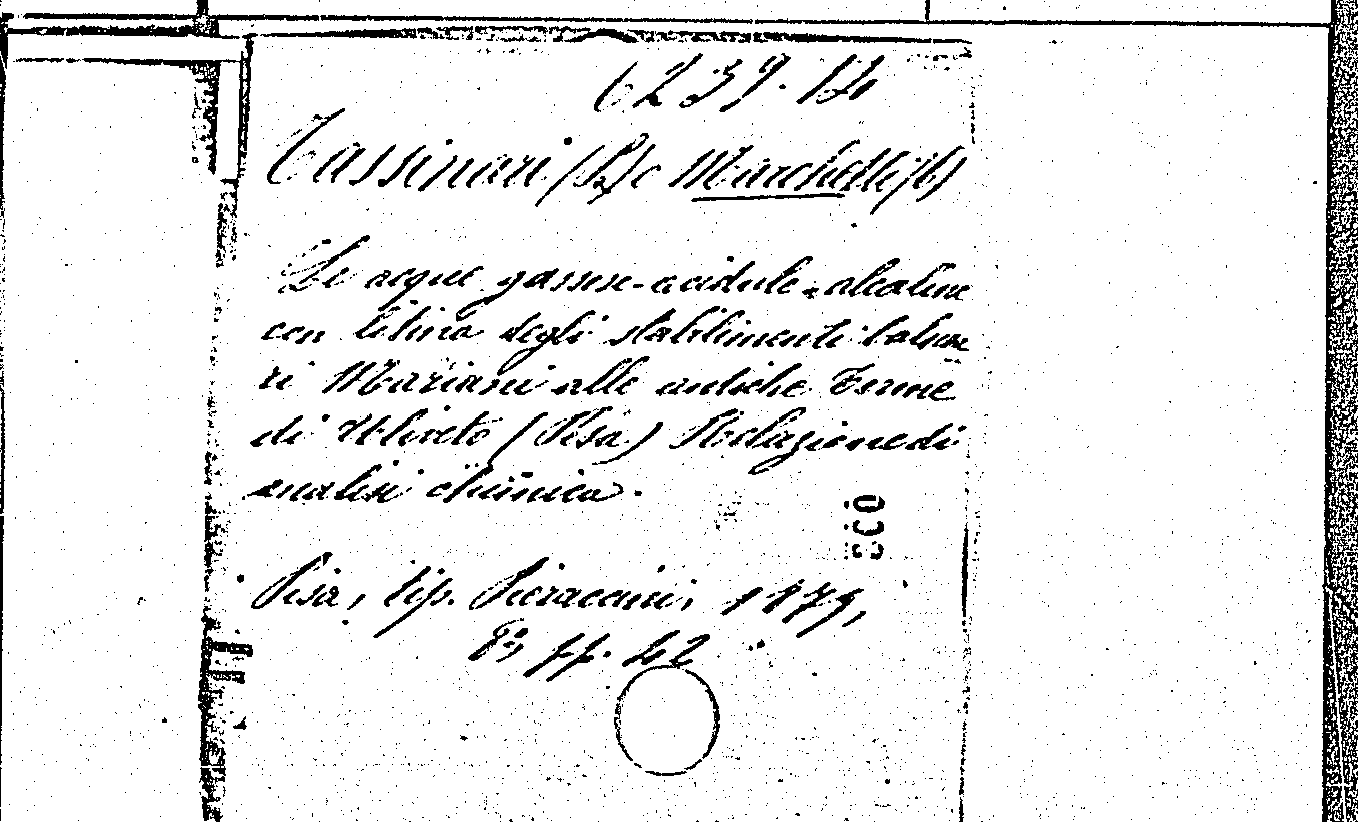 6239.14
Tassinari (P.) e Marchetti (G)
Le acque gassose-acidule-alcaline
con litina degli stabilimenti balnea
ri Mariani alle antiche Terme
di Uliveto (Pisa) Relazione di
analisi chimica.
Pisa, tip. Pieraccini, 1879,
8º, pp. 42